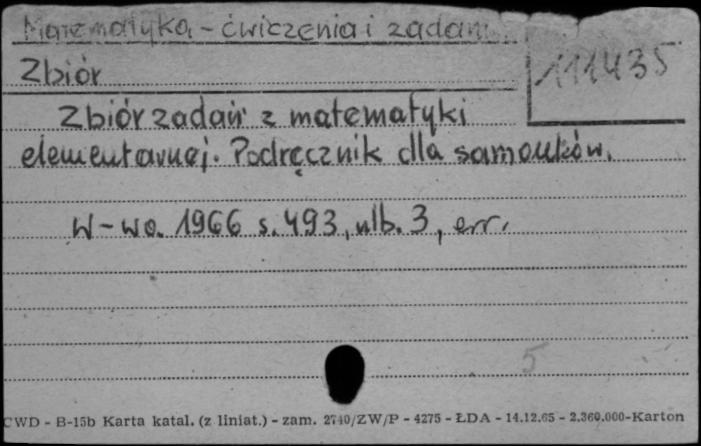 Matematyka - ćwiczenia i zadan
111435
Zbiór
Zbiór zadań z matematyki
elementarnej. Podręcznik dla samouków.
W-wa. 1966 s. 493, nlb. 3, err.
5
CWD - B-15b Karta katal. (z liniat.) - zam. 2740/ZW/P - 4275 - ŁDA - 14.12.65 - 2.360.000-Karton